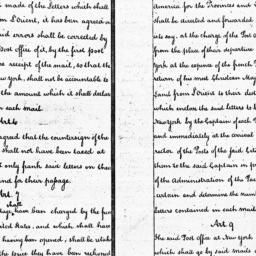 made of the Letters which shall
L'Orient, it has been agreed
said errors shall be corrected by
Post office of it, by the first post
receipt of the mail, so that the
York, shall not be accountable to
the amount which it shall declare
each mail.
Art 6
agreed that the countersign of the
shall not have been taxed at
only frank said letters on the
and for their passage.
Art. 7
shall
have been charged by the
States, and which shall have
having been opened, shall be
the price they have been reckoned
America for the Provinces and
shall be directed and forwarded
to say, at the charge of the Post
from the place of their departure
York at the expence of the french
return of his most Christian Majesty
Land from L'Orient to their
which enclose the said letters to
New York by the Captain of each
and immediately at the arrival
of the Posts of the said
them to the said Captain in
of the Administration of the
certain and determine the
letters contained in each mail
Art 9
The said Post office at New York
which shall go by said mails